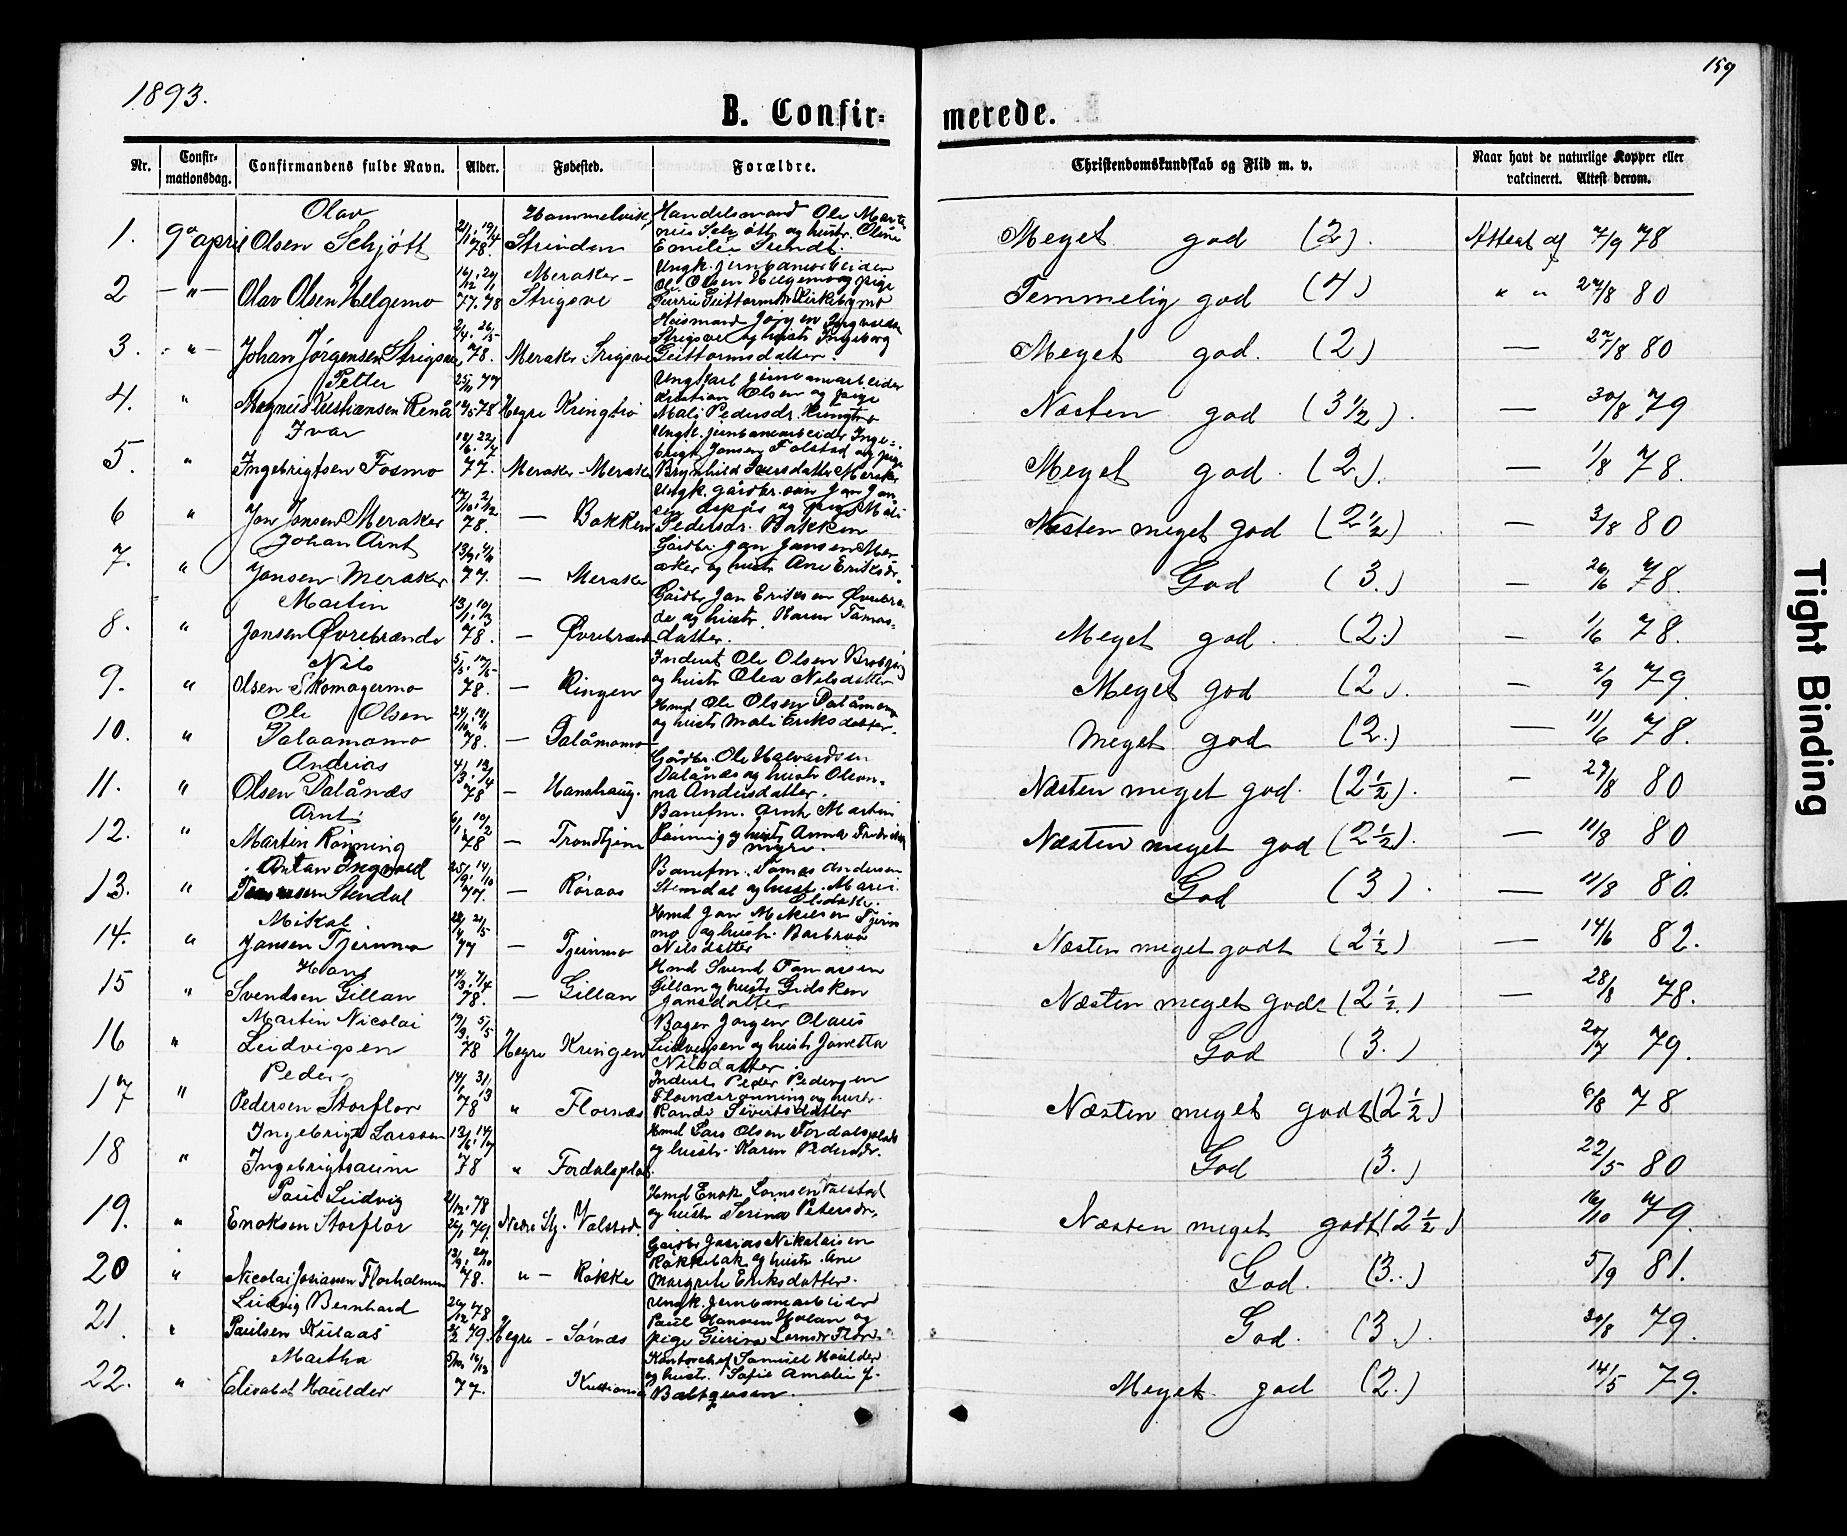 159
1893.
B. Confir- merede.
Nr. Confirmationsdag. Confirmandens fulde Navn. Alder. Fødested. Forældre. Christendomskundskab og Flid m. v. Naar havt de naturlige Kopper eller vakcineret. Attest derom.
1. 9de april Olav Olsen Schjøtt 78. Hammelvik Strinden Handelsmand Ole Martinus Schjøtt og hustr. Oline Emilie Sundt. Meget god (2). Attest af 7/9 78
2 — " — Olav Olsen Helgemo 77. 78 Meraker - Stigsve Ungk. jernbanearbeider Ol. Olsen Helgemo og pige Temmelig god (4) " " 24/8 80
3. - " - Johan Jørgensen Stigsve 78. Meraker Stigsve Husmand Jørgen Stigsve og hustr. Ingeborg Guttormsdatter Meget god. (2) — 27/8 80
4. " Petter Magnus Kristiansen Renå 77 78 Hegre Kringbrø Ungkarl jernbanearbeider Kristian Olsen og pige Mali Pedersdr. Næsten god (3 1/2). — 30/8 79
5. " Ivar Ingebrigtsen Fosmo 77. Meraker - Meraker Ungk. jernbanearbeider Ingebrigt Jonsen Folstad og pige Brynhild Iversdatter Meraker Meget god. (2). — 1/8 78.
6 " Jon Jonsen Meraker 78. — Bakken Ungk. gårdbr. søn Jon Jonsen og pige Mali Pedersdr. Bakken Næsten meget god (2 1/2) — 3/8 80
7. " Johan Arnt Jonsen Meraker 77. — Meraker Gårdbr. Jon Jonsen Meraker og hustr. Ane Eriksdr. God (3.) — 26/6 78.
8. " Martin Jonsen Øvrebrænde 78. — Øvrebrænd Gårdbr. Jon Eriksen Øvrebrænde og hustr. Karen Tomasdatter. Meget god. (2.) — 1/6 78.
9. " Nils Olsen Skomagermo 78. — Kingen Inderst Ole Olsen og hustr. Olea Nilsdatter Meget god (2.). — 2/9 79.
10. " Ole Olsen Dalaamomo 78. — Dalåmomo Hmd Ole Olsen Dalåmomo og hustr. Mali Eriksdatter. Meget god (2.) — 11/6 78.
11. " Andrias Olsen Dalånæs 78 — Hanshaug. Gårdbr. Ole Halvardsen Dalånæs og hustr. Oleanna Andersdatter. Næsten meget god. (2 1/2). — 29/8 80
12. " Arnt Martin Rønning 78 — Trondhjem Banefm. Arnt Martin Rønning og hustr. Anna Næsten meget god (2 1/2). — 11/8 80
13. " Anton Ingvald Stendal 77. — Røraas Banefm. Tomas Andersen Stendal og hustr. Marie Olsdatter. God (3.). — 11/8 80.
14. " Mikal Jonsen Tjernmo 77 — Tjernmo Hmd Jon Mikelsen Tjernmo og hustr. Barbroe Nilsdatter Næsten meget godt (2 1/2) — 14/6 82.
15 " Hans Svendsen Gillan 78. — Gillan Hmd Svend Tomassen Gillan og hustr. Gidsken Jonsdatter Næsten meget godt (2 1/2.) — 28/8 78.
16 " Martin Nicolai Ludvigsen 78 Hegre Kringen Bager Jørgen Olaus Ludvigsen og hustr. Janetta Nilsdatter. God (3.) 20/7 79.
17 " Peder Pedersen Storflor 78 " Flornæs Inderst Peder Pedersen Flornæsrønning og hustr. Randi Sivertsdatter Næsten meget godt (2 1/2) 6/8 78
18 " Ingebrigt Larssen Ingebrigtsaune 78 " Fordalsplad. Hmd Lars Olsen Fordalsplads og hustr. Karen Pedersdr. God (3.) 22/5 80
19. " Paul Ludvig Enoksen Storflor 78 79. Nedre Stj. Valstad. Hmd Enok Larnsen Valstad og hustr. Serina Petersdr. Næsten meget godt (2 1/2) 16/10 79.
20 " Nicolai Josiassen Florholmen 78. " — Røkke Gårdbr. Josias Nikolaisen Røkkebak og hustr. Ane Margrete Eriksdatter. God. (3.) 5/9 81.
21. " Ludvig Bernhard Paulsen Kulaas 78 79. Hegre - Sørnæs Ungk. jernbanearbeider Paul Hansen Holan og pige Gurina God. (3.). 30/8 79.
22. " Martha Elisabet Houlder 77. Kristiania Kontorchef Samuel Houlder og hustr. Sofie Amalie f. Baltzersen. Meget god (2.) 14/5 79.
Tight Binding